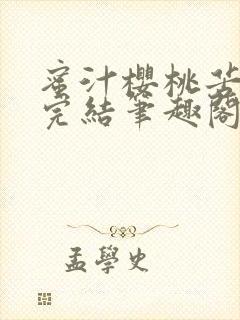 蜜汁櫻桃苦
完結筆趣閣
孟學史